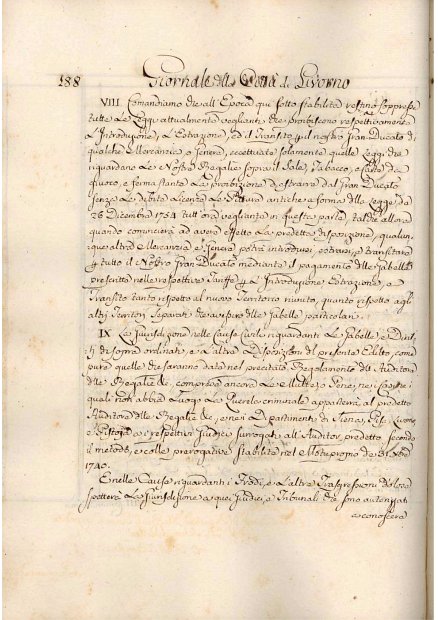 188 Giornale della Città di Livorno
VIII. Comandiamo che all'Epoca qui sotto stabilita restino soppresse
tutte le Leggi attualmente veglianti che proibiscono respettivamente
L'Introduzione, L'Estrazione, ed il Transito per il nostro Gran-Ducato di
qualche Mercanzia o Genere, eccettuate solamente quelle Leggi che
riguardano Le Nostre Regalie sopra il Sale, Tabacco, e Carte da
Giuoco, e ferma stante La proibizione d'estrarre dal Gran Ducato
senza Le debite Licenze Le Pitture antiche a forma della Legge de
26 Dicembre 1754 tutt'ora vegliante in questa parte, talché allora
quando comincierà ad avere effetto La predetta disposizione, qualun-
que altra Mercanzia, e Genere potrà introdursi, estrarsi, e transitare
per tutto il Nostro Gran Ducato mediante il pagamento delle Gabelle
prescritta nelle respettive Tariffe per L'Introduzione, Estrazione, e
Transito tanto rispetto al nuovo Territorio riunito, quanto rispetto agl'
altri Territori Separati Riservati delle Gabelle particolari.
IX. La Giurisdizione nelle Cause Civili riguardanti Le Gabelle, e Dirit-
ti di sopra ordinati, e L'altre Disposizioni del presente Editto, come
pure quelle che saranno date nel precitato Regolamento all'Auditore
delle Regalie &c, comprese ancora Le Multe, e Pene, nei casi nei
quali non abbia Luogo La Querela criminale apparterrà al predetto
Auditore delle Regalie &c, e nei Dipartimenti di Siena, Pisa, Livorno,
e Pistoja a' respettivi Giudici surrogati all'Auditor predetto secondo
il metodo, e colle prerogative stabilite nel Motuproprio de 31
1740.
E nelle Cause riguardanti i Frodi, e L'altre Trasgressioni dolose
spetterà La Giurisdizione a quei Giudici, e Tribunali che sono autorizzati
a conoscere